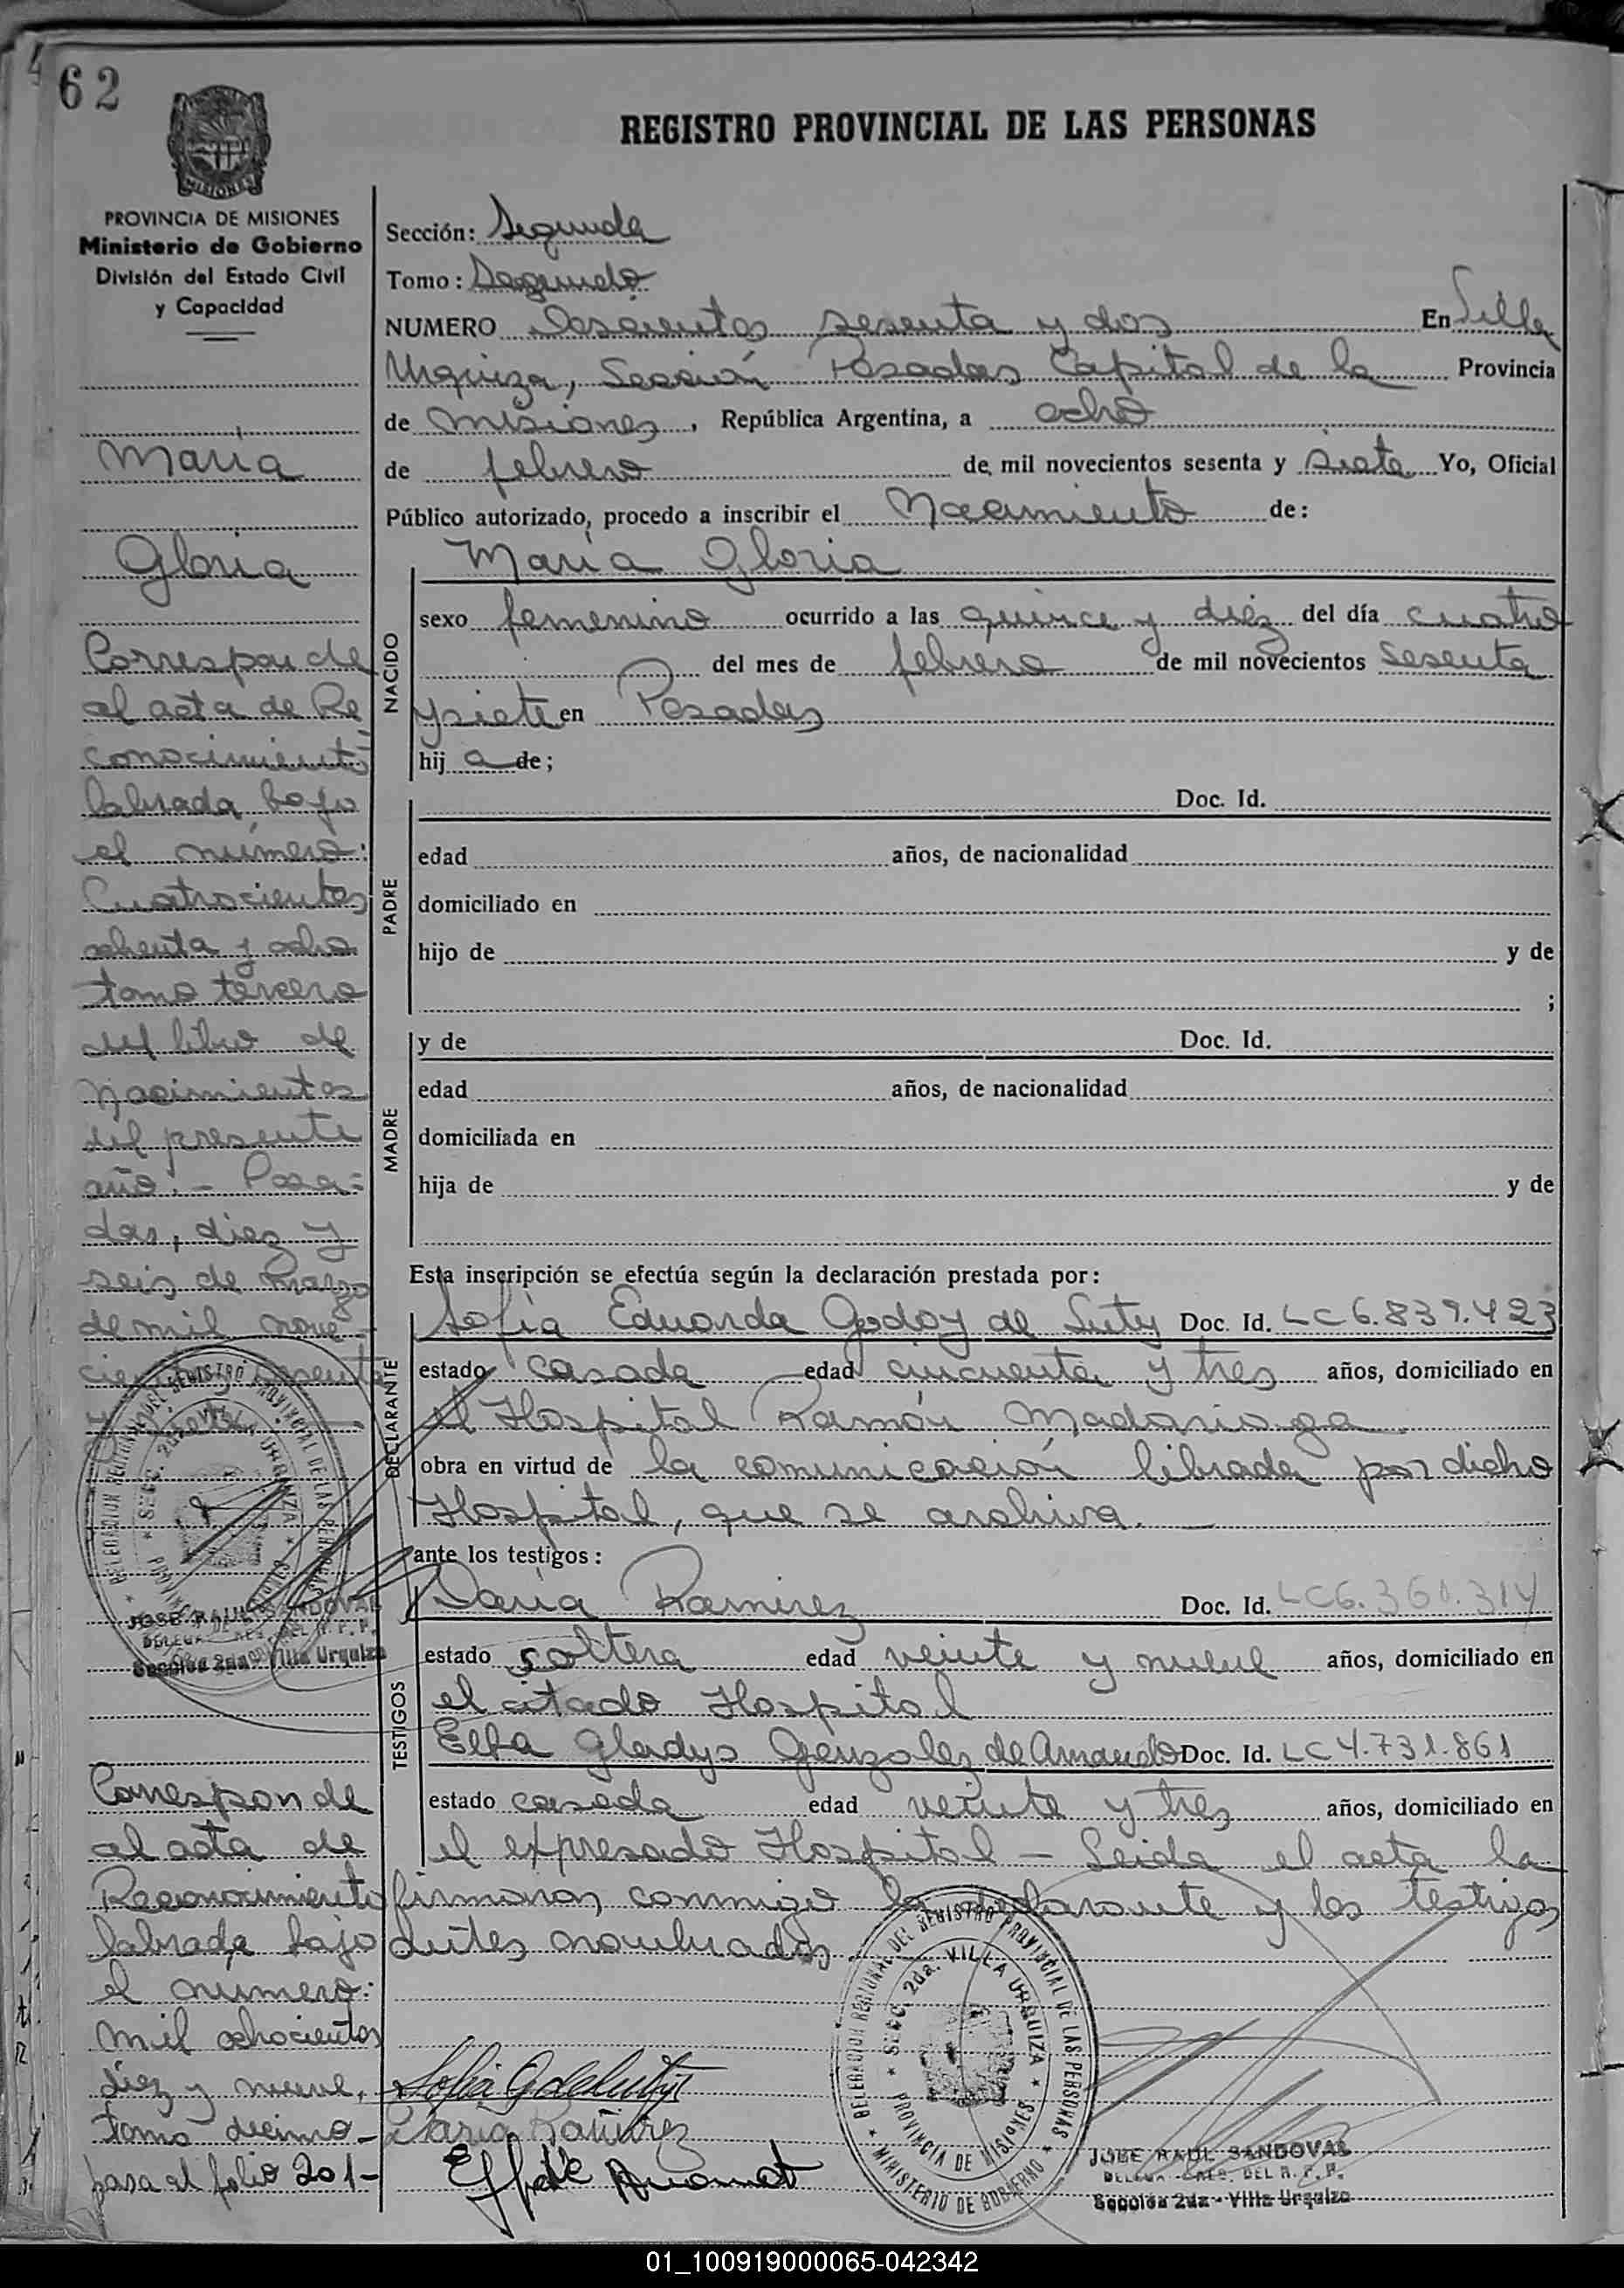 62
REGISTRO PROVINCIAL DE LAS PERSONAS
MISIONES
PROVINCIA DE MISIONES
Ministerio de Gobierno
División del Estado Civil
y Capacidad
María
Gloria
Corresponde
al acta de Re
conocimiento
labrada bajo
el número:
Cuatrocientos
ochenta y ocho
tomo tercero
del libro de
Nacimientos
del presente
año. - Posa=
das, diez y
seis de marzo
de mil nove-
cientos sesenta
y
JOSE RAUL SANDOVAL
Sección 2da - Villa Urquiza
Corresponde
al acta de
Reconocimiento
labrada bajo
el numero:
mil ochocientos
diez y nueve,
tomo decimo-
pasa al folio 201-
Sección: Segunda
Tomo: Segundo
NUMERO Doscientos sesenta y dos En Villa
Urquiza, Sección Posadas Capital de la Provincia
de Misiones, República Argentina, a ocho
de febrero de mil novecientos sesenta y siete Yo, Oficial
Público autorizado, procedo a inscribir el Nacimiento de:
María Gloria
NACIDO
sexo femenino ocurrido a las quince y diez del día cuatro
del mes de febrero de mil novecientos sesenta
y siete en Posadas
hij a de;
PADRE
Doc. Id.
edad años, de nacionalidad
domiciliado en
hijo de y de
;
MADRE
y de Doc. Id.
edad años, de nacionalidad
domiciliada en
hija de y de
Esta inscripción se efectúa según la declaración prestada por:
DECLARANTE
Sofía Eduarda Godoy de Doc. Id. LC 6.839.423
estado casada edad cincuenta y tres años, domiciliado en
el Hospital Ramón Madariaga
obra en virtud de la comunicación librada por dicho
Hospital, que se archiva.
ante los testigos:
TESTIGOS
Daría Ramirez Doc. Id. LC6.360.314
estado soltera edad veinte y nueve años, domiciliado en
el citado Hospital
Elba Gladys Gonzalez de Doc. Id. LC 4.731.861
estado casada edad veinte y tres años, domiciliado en
el expresado Hospital - Leida el acta la
firmaron conmigo la declarante y los testigos
antes nombrados
DELEGACION REGIONAL DEL REGISTRO PROVINCIAL DE LAS PERSONAS
SECC. 2da. VILLA URQUIZA
PROVINCIA DE MISIONES
MINISTERIO DE GOBIERNO
Daria Ramirez
JOSE RAUL SANDOVAL
Sección 2da - Villa Urquiza
01_100919000065-042342